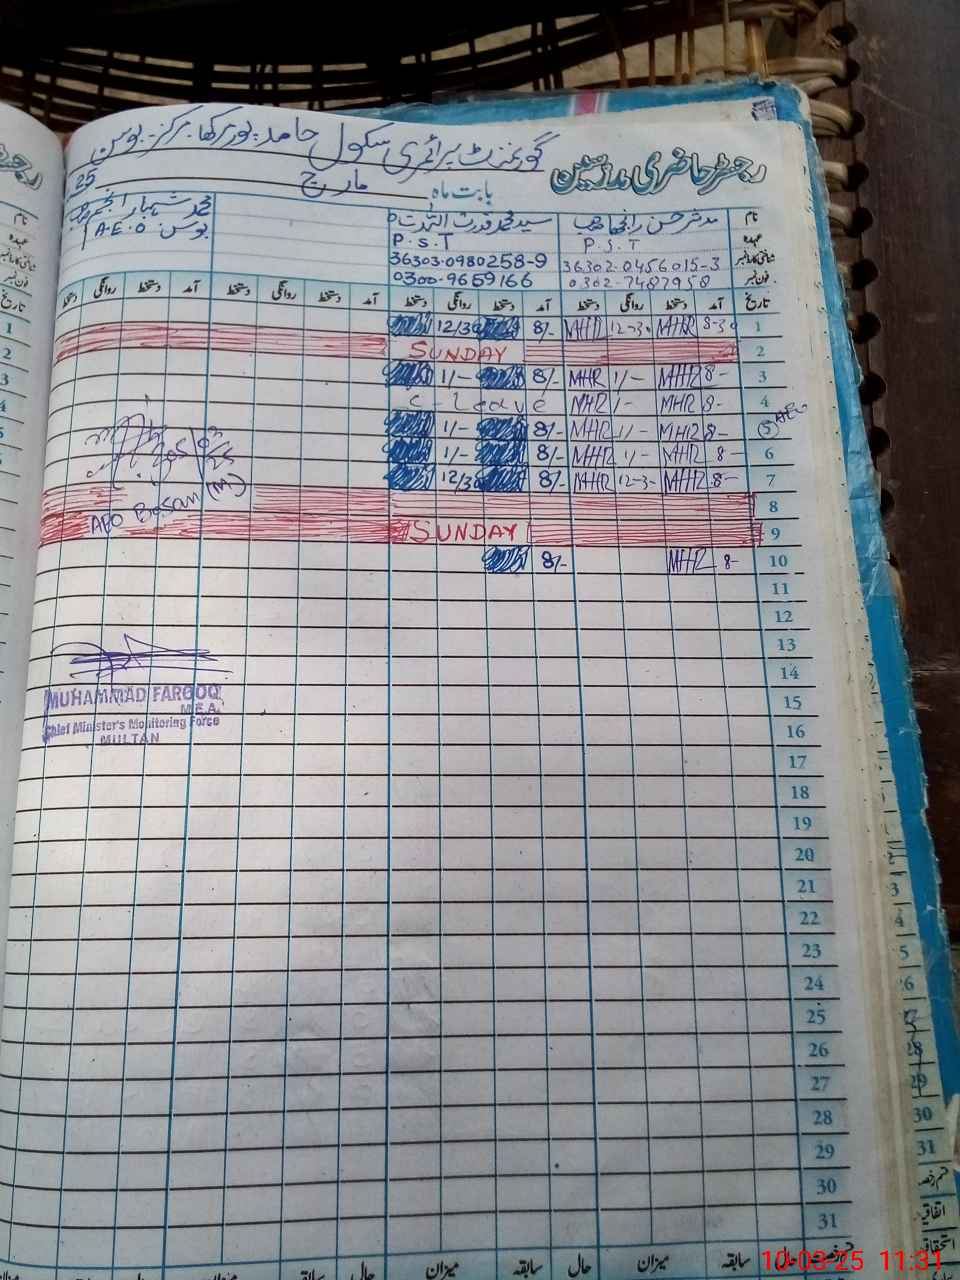 رجسٹر حاضری مدرسین
گورنمنٹ پرائمری سکول حامد پور
بابت ماہ مارچ 25
نام
عہدہ
شناختی کارڈ نمبر
فون نمبر
مدثر حسن رانجھا صاحب
P.S.T
36302-0456015-3
0302-7487958
سید محمد قدرت اللہ
P.S.T
36303-0980258-9
0300-9659166
محمد شہباز انجم صاحب
A.E.O بوسن
تاریخ آمد دستخط روانگی دستخط آمد دستخط روانگی دستخط آمد دستخط روانگی دستخط آمد دستخط روانگی دستخط
1 8-30 MHR 12-30 MHR 8/- 12/30
2 SUNDAY
3 8- MHR 1/- MHR 8/- 1/-
4 8- MHR 1/- MHR C-Leave
5 AEO 8- MHR 1/- MHR 8/- 1/-
6 8- MHR 1/- MHR 8/- 1/-
7 8- MHR 12-3- MHR 8/- 12/30
8
9 SUNDAY
10 8- MHR 8/-
11
12
13
14
15
16
17
18
19
20
21
22
23
24
25
26
27
28
29
30
31
AEO Bosan (M)
MUHAMMAD FAROOQ
M.E.A.
Chief Minister's Monitoring Force
MULTAN
حال سابقہ میزان حال سابقہ میزان حال سابقہ میزان
10-03-25 11:31